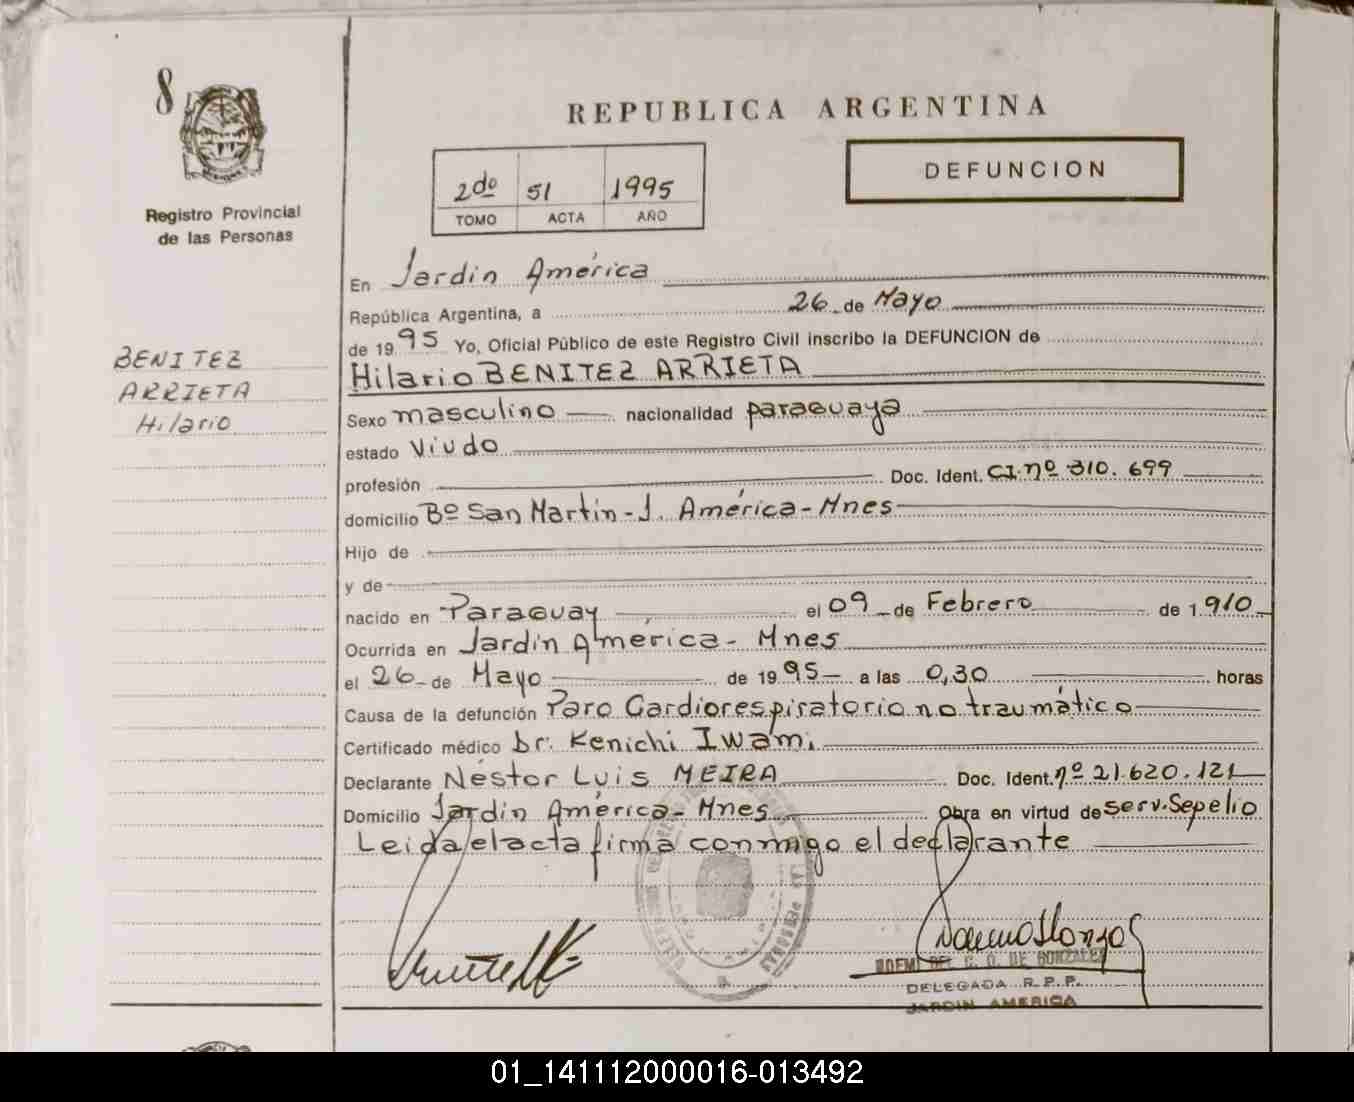 8
Registro Provincial
de las Personas
BENITEZ
ARRIETA
Hilario
REPUBLICA ARGENTINA
2do 51 1995
TOMO ACTA AÑO
DEFUNCION
En Jardín América
República Argentina, a 26 de Mayo
de 1995 Yo, Oficial Público de este Registro Civil inscribo la DEFUNCION de
Hilario BENITEZ ARRIETA
Sexo masculino nacionalidad paraguaya
estado Viudo
profesión Doc. Ident. CI. nº 310.699
domicilio Bº San Martín - J. América - Mnes
Hijo de
y de
nacido en Paraguay el 09 de Febrero de 1.910
Ocurrida en Jardín América - Mnes
el 26 de Mayo de 1995 a las 0,30 horas
Causa de la defunción Paro Cardiorespiratorio no traumático
Certificado médico Dr. Kenichi Iwami
Declarante Néstor Luis MEIRA Doc. Ident. nº 21.620.121
Domicilio Jardín América - Mnes Obra en virtud de serv. Sepelio
Leida el acta firma conmigo el declarante
NOEMI DEL C. O. DE GONZALEZ
DELEGADA R.P.P.
JARDIN AMERICA
01_141112000016-013492